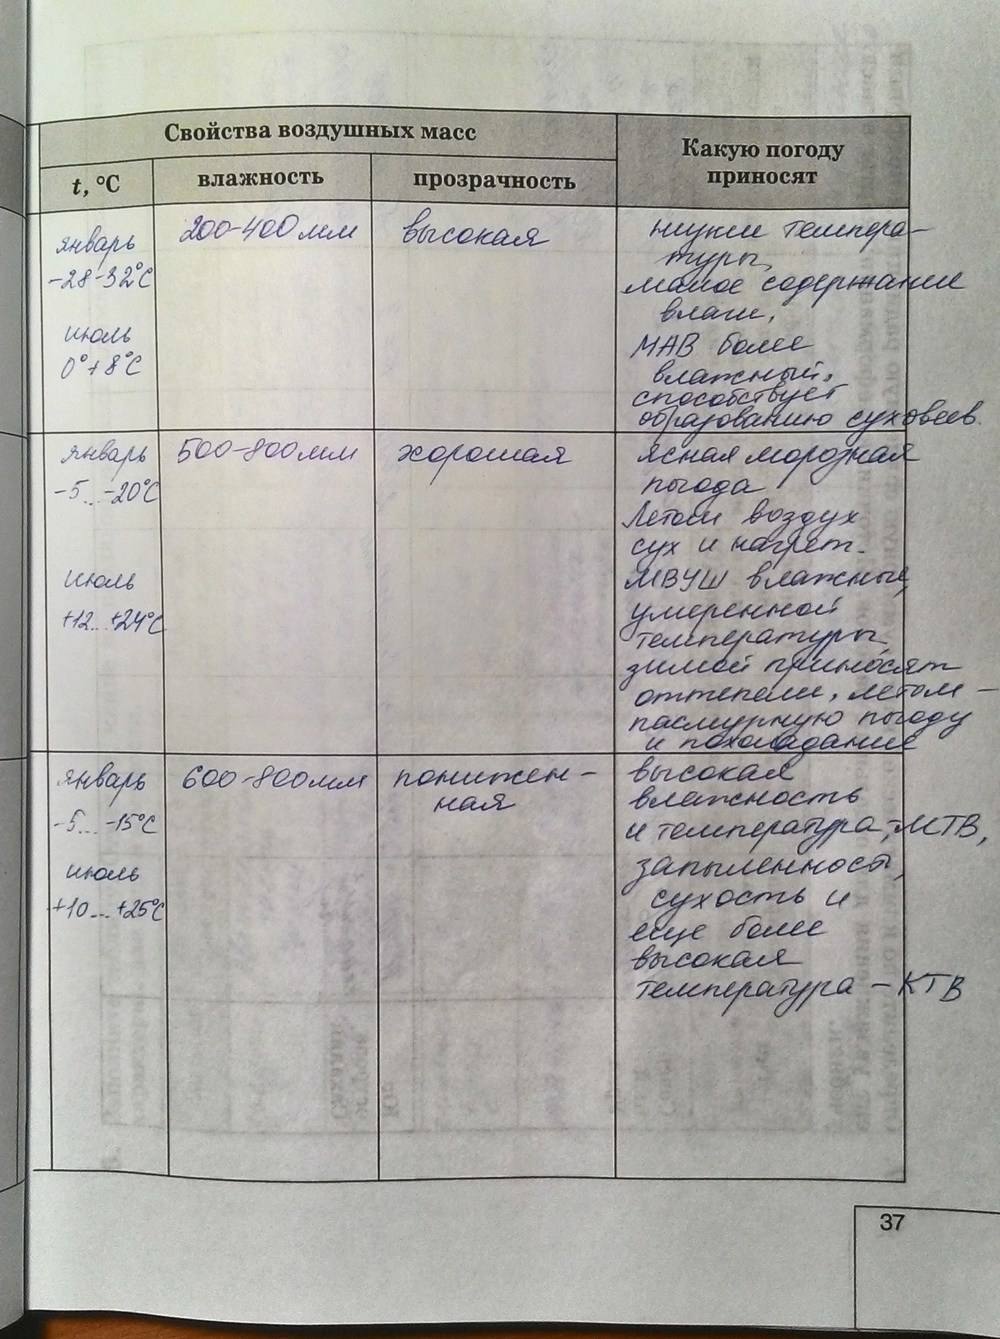 Свойства воздушных масс
Какую погоду
приносят
t, °C
влажность
прозрачность
январь
-28-32°C
июль
0°+8°C
200-400 мм
высокая
низкие темпера-
туры,
малое содержание
влаги,
МАВ более
влажный,
способствует
образованию суховеев.
январь
-5...-20°C
июль
+12...+24°C
500-800 мм
хорошая
ясная морозная
погода
Летом воздух
сух и нагрет.
МВУШ влажные,
умеренной
температуры,
зимой приносят
оттепели, летом -
пасмурную погоду
и похолодание
январь
-5...-15°C
июль
+10...+25°C
600-800 мм
понижен-
ная
высокая
влажность
и температура, - МТВ,
запыленность,
сухость и
еще более
высокая
температура - КТВ
37